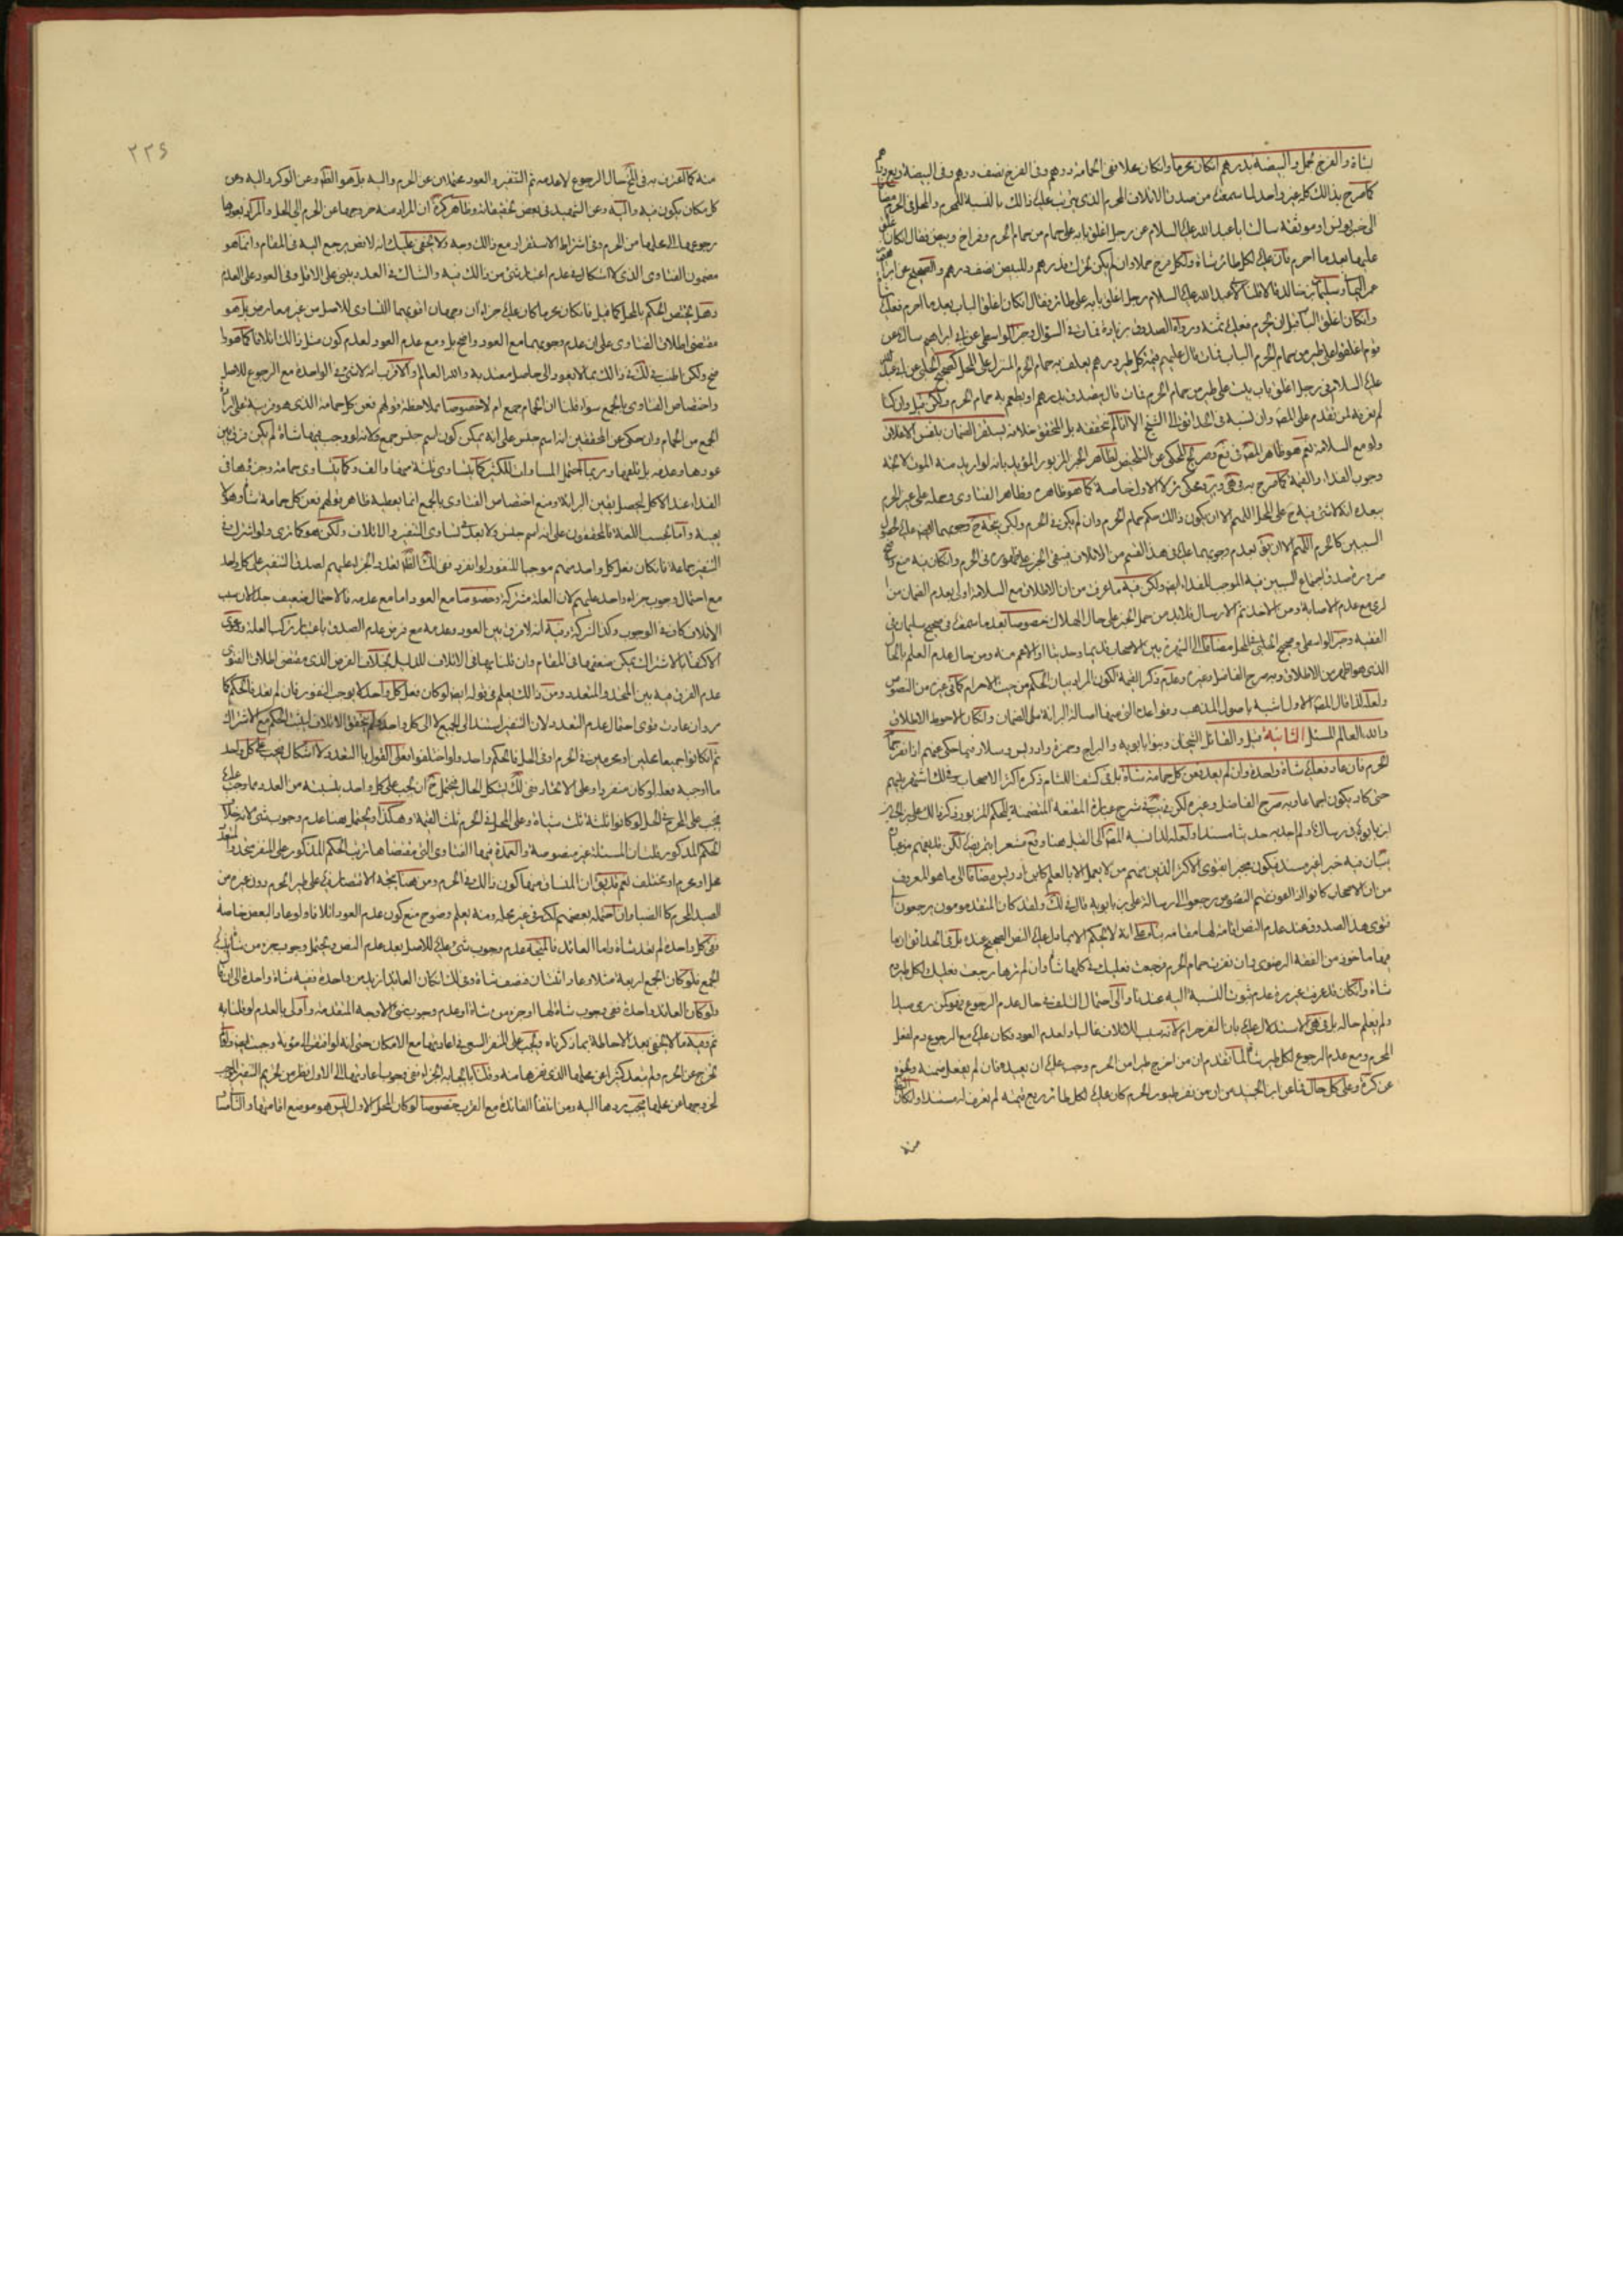 بشاة والفرخ بحمل والبيضة بدرهم ان كان محرما وان كان محلا ففي الحمامة درهم وفي الفرخ نصف درهم وفي البيضة ربع درهم
كما صرح بذلك كله غير واحد لما سمعته من صدق الاتلاف المحرم الذي يترتب عليه ذلك بالنسبة للمحرم والمحل في الحرم مضافا
الى خبر يونس او موثقه سالت ابا عبد الله عليه السلام عن رجل اغلق بابه على حمام من حمام الحرم وفراخ وبيض فقال ان كان اغلق
عليها بعد ما احرم فان عليه لكل طائر شاة ولكل فرخ حملا وان لم يكن تحرك فدرهم وللبيض نصف درهم والصحيح عن
وسليمان بن خالد قالا قلنا لابي عبد الله عليه السلام رجل اغلق بابه على طائر فقال ان كان اغلق الباب بعد ما احرم فعليه شاة
وان كان اغلق الباب قبل ان يحرم فعليه ثمنه ورواه الصدوق بزيادة فمات في السؤال وخبر الواسطي عن ابي ابراهيم سالته عن
قوم اغلقوا على طير من حمام الحرم الباب فمات قال عليهم قيمة كل طير درهم يعلف به حمام الحرم المنزل على المحل كصحيح الحلبي عن ابي عبد الله
عليه السلام في رجل اغلق باب بيت على طير من حمام الحرم فمات قال يتصدق بدرهم او يطعم به حمام الحرم ولكن قيل وان كنا
لم نعرفه لمن تقدم على المصنف وان نسبه في الحدائق الى الشيخ الا انا لم نتحققه بل المحقق خلافه يستقر الضمان بنفس الاغلاق
ولو مع السلامة نعم هو ظاهر المصنف في فع وصريح المحكي عن التلخيص لظاهر الخبر المزبور المؤيد بانه لو اريد منه الموت لاتجه
وجوب الفداء والقيمة كما صرح به في هى وير ومحكي كره لا الاول خاصة كما هو ظاهره وظاهر الفتاوى وحمله على غير الحرم
يبعده انه لا شئ فيه ح على المحل اللهم الا ان يكون ذلك حكم حمام الحرم وان لم يكن في الحرم ولكن يتجه ح وجوبهما ايضا عليه لحصول
السببين كالحرم اللهم الا ان يق بعدم وجوبهما عليه في هذا القسم من الاتلاف فيبقى الخبر على ظهوره في الحرم وان كان فيه منع واضح
ضرورة صدق اجتماع السببين فيه الموجب للفداء ايضا ولكن فيه ما عرفت من ان الاغلاق مع السلامة اولى بعدم الضمان من
الرمي مع عدم الاصابة ومن الاخذ ثم الارسال فلا بد من حمل الخبر على حال الهلاك خصوصا بعد ما سمعته في صحيح سليمان في
الفقيه وخبر الواسطي وصحيح الحلبي في المحل مضافا الى الشهرة بين الاصحاب قديما وحديثا او الاعم منه ومن حال عدم العلم بالحال
الذي هو اظهر من الاطلاق وبه صرح الفاضل وغيره وعدم ذكر القيمة لكون المراد بيان الحكم من حيث الاحرام كما في غيره من النصوص
ولعله لذا قال المصنف الاول اشبه باصول المذهب وقواعده التي منها اصالة البرائة على الضمان وان كان الاحوط الاطلاق
والله العالم المسئلة الثانية قيل والقائل الشيخان وبنو بابويه والبراج وحمزة وادريس وسلار فيما حكي عنهم اذا نفر حمام
الحرم فان عاد فعليه شاة واحدة وان لم يعد فعن كل حمامة شاة بل في كشف اللثام ذكره اكثر الاصحاب وفي لك اشتهر بينهم
حتى كاد يكون اجماعا وبه صرح الفاضل وغيره لكن في يب في شرح عبارة المقنعة المتضمنة للحكم المزبور ذكر ذلك علي بن الحسين
ابن بابويه في رسالته ولم اجد به حديثا مسندا ولعله لذا نسبه المصنف الى القيل هنا وفع مشعرا بتمريضه لكن قد يتهم من عباراته
بيان فيه خبر غير مسند فيكون مجبرا بفتوى الاكثر الذين منهم من لا يعمل الا بالعلم كابن ادريس مضافا الى ما هو المعروف
من ان الاصحاب كانوا اذا اعوزتهم النصوص رجعوا الى رسالة علي بن بابويه قال في لك ولقد كان المتقدمون يرجعون الى
فتوى هذا الصدوق عند عدم النص اقامة لها مقامه بناء على انه لا يحكم الا بما دل عليه النص الصحيح عنده بل في الحدائق انها
فيها ماخوذ من الفقه الرضوي وان نفرت حمام الحرم فرجعت فعليك في كلها شاة وان لم ترها رجعت فعليك لكل طير دم
شاة وان كان قد عرفت غير مرة عدم ثبوت النسبة اليه عندنا والى احتمال التلف في حال عدم الرجوع فهو كمن رمى صيدا
ولم يعلم حاله بل في هى الاستدلال عليه بان التنفير حرام لانه سبب للاتلاف غالبا ولعدم العود فكان عليه مع الرجوع دم لفعل
المحرم ومع عدم الرجوع لكل طير شاة لما تقدم ان من اخرج طيرا من الحرم وجب عليه ان يعيده فان لم يفعل ضمنه ونحوه
عن كره وعلى كل حال فما عن ابن الجنيد من ان من نفر طيور الحرم كان عليه لكل طائر ربع قيمته لم نعرف له سندا ولو كان
منه
٢٢٤
منه كما اعترف به في لف حال الرجوع لا عدمه ثم التنفير والعود يحتملان عن الحرم واليه بل هو الظاهر وعن الوكر واليه وعن
كل مكان يكون فيه واليه وعن الشهيد في بعض تحقيقاته وظاهر كره ان المراد منه خروجها عن الحرم الى الحل والمراد بعودها
رجوعها الى محلها من الحرم وفي اشتراط الاستقرار مع ذلك وجه ولا يخفى عليك انه لا نص يرجع اليه في المقام وانما هو
مضمون الفتاوى الذي لا اشكال في عدم اعتبار شئ من ذلك فيه والشاك في العدد يبني على الاقل وفي العود على العدم
وهل يختص الحكم بالمحل كما قيل فان كان محرما كان عليه جزاآن وجهان اقويهما التساوي للاصل من غير معارض بل هو
مقتضى اطلاق الفتاوى على ان عدم وجوبهما مع العود واضح بل ومع عدم العود لعدم كون مثل ذلك اتلافا كما هو
ولكن اطنب في لك في ذلك بما لا يعود الى حاصل معتد به والله العالم والاقرب انه لا شئ في الواحدة مع الرجوع للاصل
واختصاص الفتاوى بالجمع سواء قلنا ان الحمام جمع ام لا خصوصا بملاحظة قولهم فعن كل حمامة الذي هو قرينة على ارادة
الجمع من الحمام وان حكي عن المحققين انه اسم جنس على انه يمكن كون اسم جنس جمع ولانه لو وجب فيها شاة لم يكن فرق بين
عودها وعدمه بل تلفها وربما احتمل المساوات للكثير كما يتساوى ثلثة منها والف وكما يتساوى حمامة وجزؤها في
الفداء عند الاكل ليحصل يقين البرائة ومنع اختصاص الفتاوى بالجمع انما يعطيه ظاهر قولهم فعن كل حمامة شاة وهو لا
يعينه واما بحسب اللغة فالمحققون على انه اسم جنس ولا بعد في تساوي التنفير والاتلاف ولكن هو كما ترى ولو اشترك في
التنفير جماعة فان كان فعل كل واحد منهم موجبا للنفور لو انفرد ففي لك الظاهر تعدد الجزاء عليهم لصدق التنفير على كل واحد
مع احتمال وجوب جزاء واحد عليهم لان العلة مشتركة وخصوصا مع العود اما مع عدمه فالاحتمال ضعيف جدا لان سبب
الاتلاف كاف في الوجوب وكذا الشركة وفيه انه لا فرق بين العود وعدمه مع فرض عدم الصدق باعتبار تركب العلة ودعوى
الاكتفاء بالاشتراك يمكن منعها في المقام وان قلنا بها في الاتلاف للدليل بخلاف الفرض الذي مقتضى اطلاق الفتوى
عدم الفرق فيه بين المتحد والمتعدد ومن ذلك يعلم في قوله ايضا لو كان فعل كل واحد لا يوجب النفور فان لم يعد فالحكم كما
مر وان عادت قوى احتمال عدم التعدد لان التنفير استند الى الجميع لا الى كل واحد ولم يتحقق الاتلاف ليثبت الحكم مع الاشتراك
ثم ان كانوا جميعا محلين او محرمين في الحرم او في الحل فالحكم واحد ولو اختلفوا فعلى القول بالتعدد لا اشكال فيجب على كل واحد
ما اوجبه فعله لو كان منفردا وعلى الاتحاد ففي لك يشكل الحال فيحتمل ح ان يجب على كل واحد بنسبته من العدد مما وجب عليه
يجب على المحرم في الحل لو كانوا ثلثة ثلث شياة وعلى المحل في الحرم ثلث القيمة وهكذا ويحتمل هنا عدم وجوب شئ لانه خلاف
الحكم المذكور قلت ان المسئلة غير منصوصة والعمدة فيها الفتاوى التي مقتضاها ترتب الحكم المذكور على المنفر متحدا او متعددا
محل او محرم او مختلف نعم قد يق ان المنساق منها كون ذلك في الحرم ومن هنا يتجه الاقتصار فيه على طير الحرم دون غيره من
الصيد المحرم كالضبا وان احتمله بعضهم لكنه في غير محله ومنه يعلم وضوح منع كون عدم العود اتلافا ولو عاد البعض خاصة
ففي كل واحدة لم تعد شاة واما العائد فالمتجه عدم وجوب شئ عليه للاصل بعد عدم النص ويحتمل وجوب جزء من شاة بنسبة
الجميع فلو كان الجميع اربعة مثلا وعاد اثنتان فنصف شاة وفي لك ان كان العائد ازيد من واحدة ففيه شاة واحدة
ولو كان العائد واحدة ففي وجوب شاة لها او جزء من شاة او عدم وجوب شئ الاوجه المتقدمة واولى بالعدم لو قلنا به
ثم وفيه ما لا يخفى بعد الاحاطة بما ذكرناه ويجب على المنفر السعي في اعادتها مع الامكان حتى انه لو افتقر الى مؤنة وجبت ايضا ولو لم
تخرج عن الحرم ولم تبعد كثيرا عن محلها الذي نفرها منه وقلنا بايجابه الجزاء ففي وجوب اعادتها الى الاول نظر من تحريم التنفير الموجب
لخروجها عن محلها فيجب ردها اليه ومن انتفاء الفائدة مع القرب خصوصا لو كان المحل الاول ليس هو موضع اقامتها واما